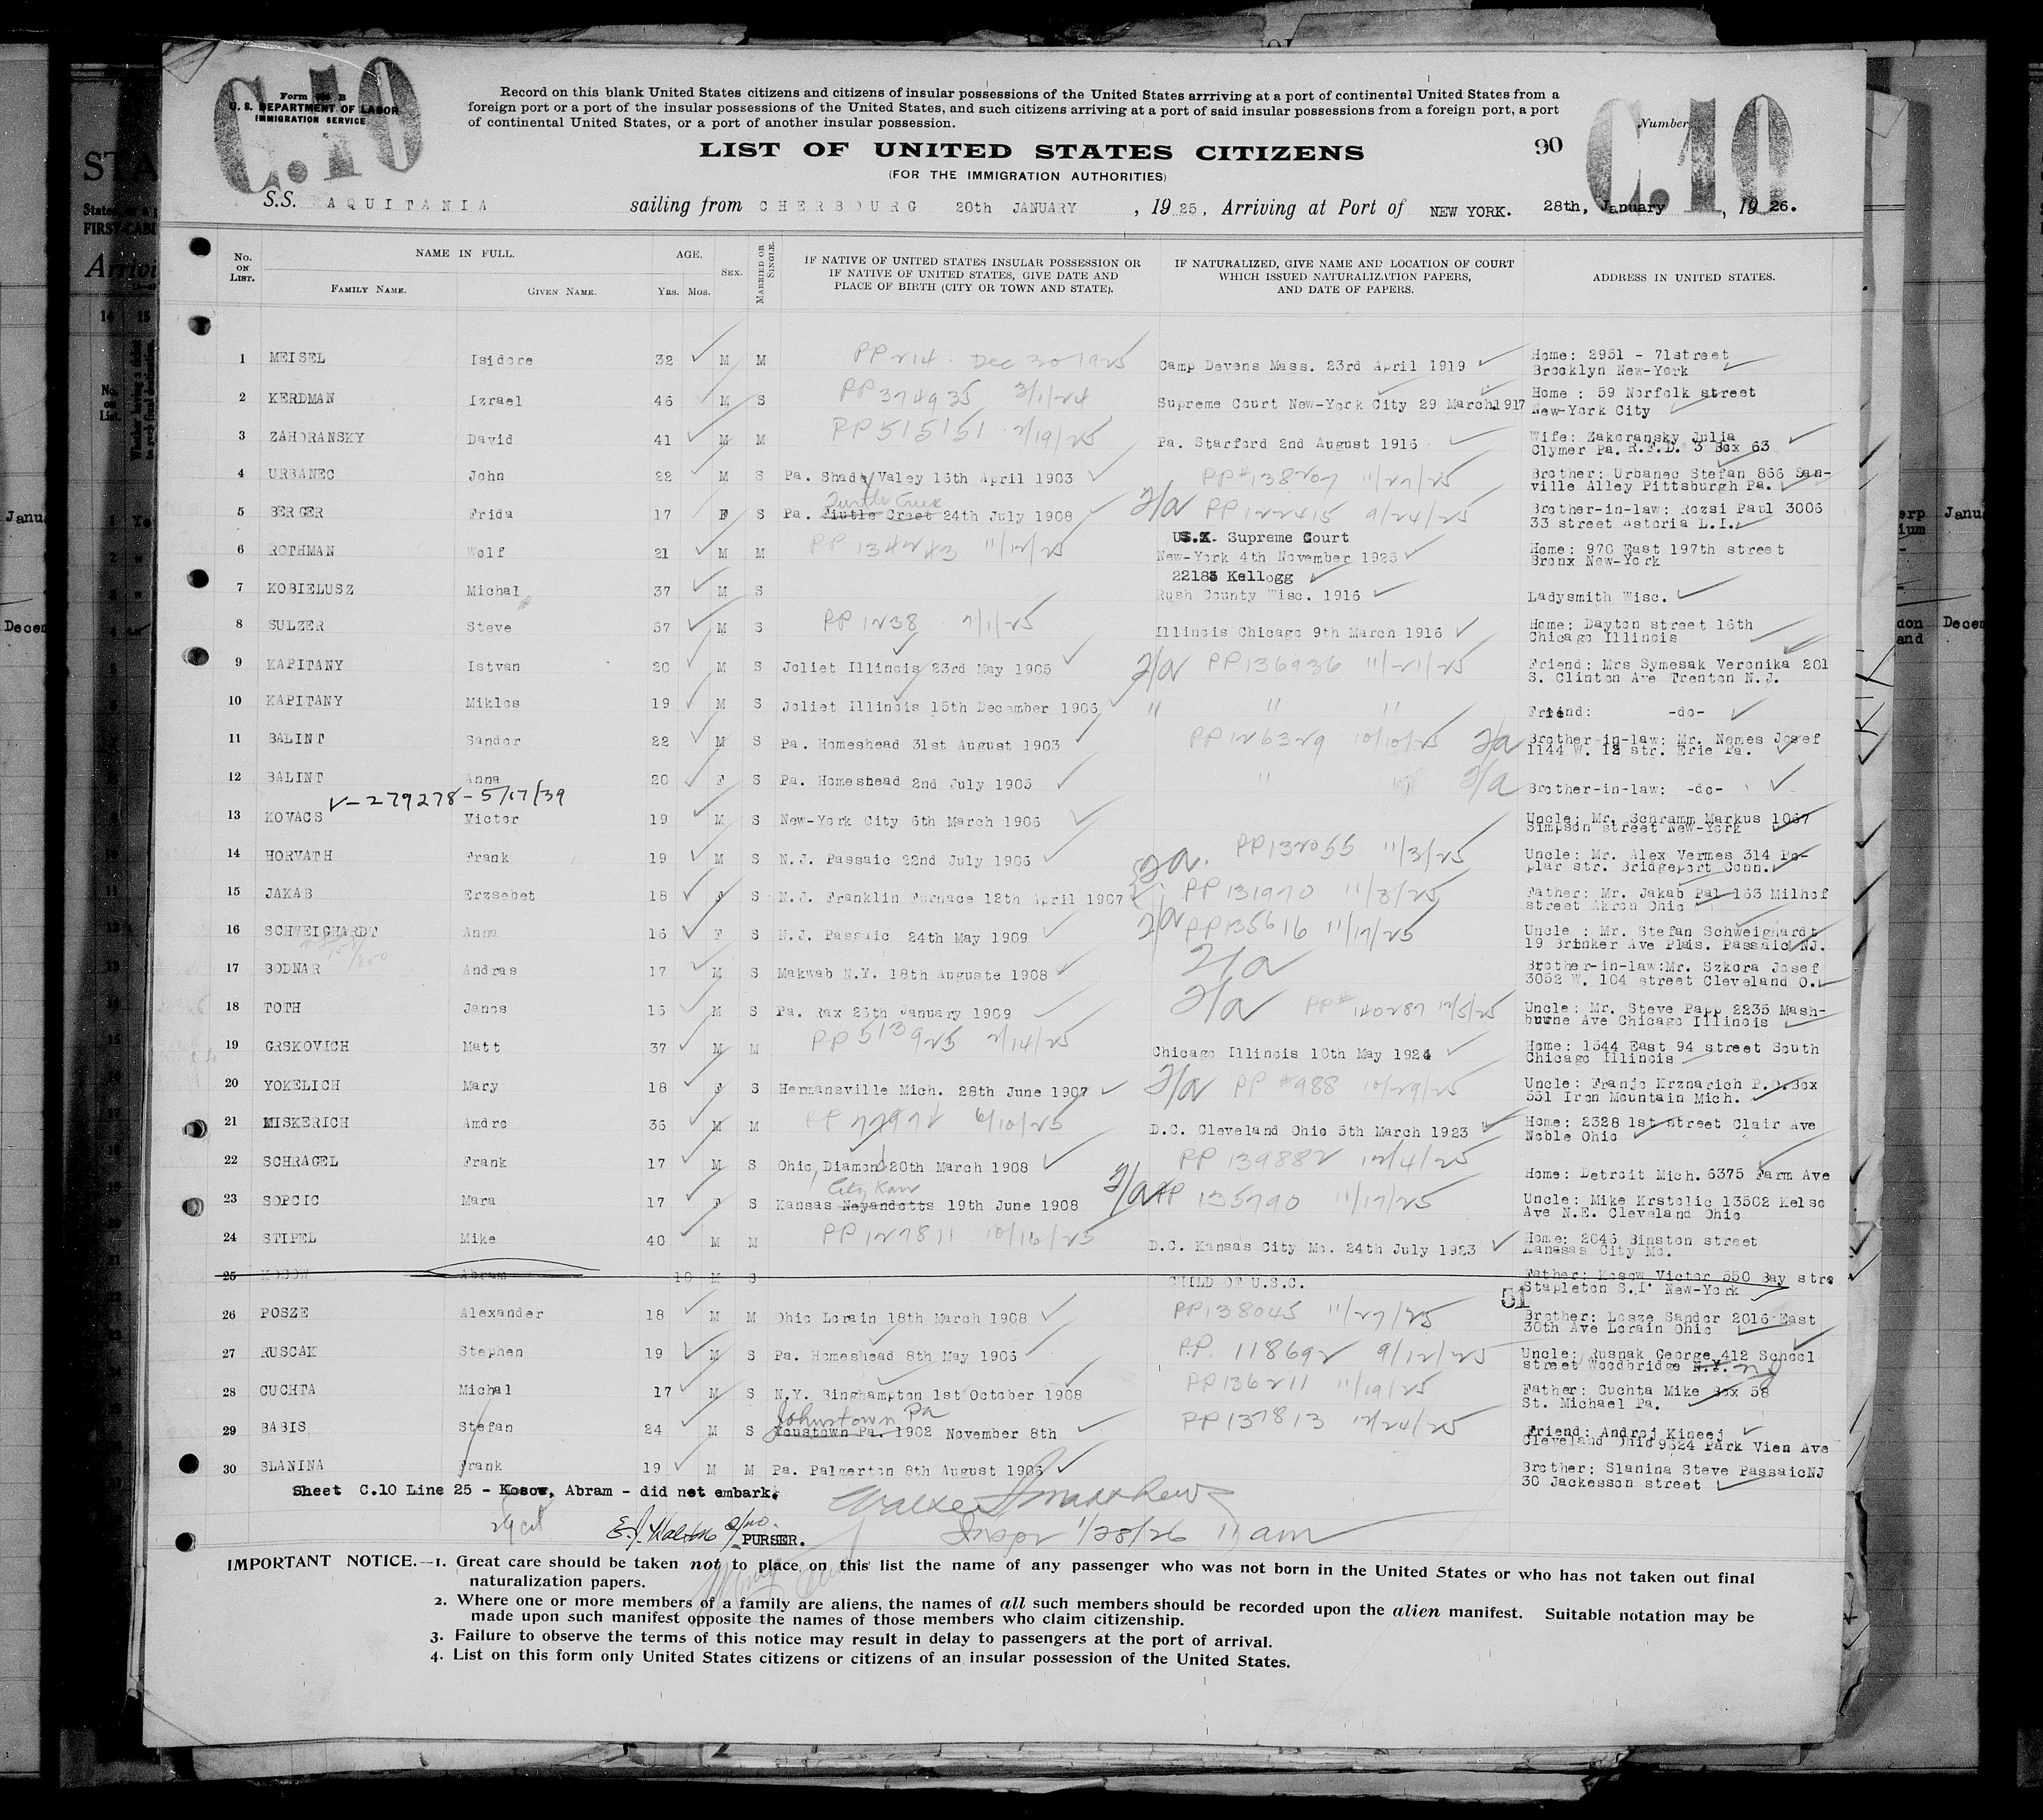 C.10
Form B
U. S. DEPARTMENT OF LABOR
IMMIGRATION SERVICE
Record on this blank United States citizens and citizens of insular possessions of the United States arrriving at a port of continental United States from a
foreign port or a port of the insular possessions of the United States, and such citizens arriving at a port of said insular possessions from a foreign port, a port
of continental United States, or a port of another insular possession.
LIST OF UNITED STATES CITIZENS
(FOR THE IMMIGRATION AUTHORITIES)
90
Number
C.10
S.S. AQUITANIA sailing from CHERBOURG 20th JANUARY , 19 25, Arriving at Port of NEW YORK. 28th, January , 19 26.
No. ON LIST.
NAME IN FULL.
FAMILY NAME. GIVEN NAME.
AGE.
YRS. MOS.
SEX.
MARRIED OR SINGLE.
IF NATIVE OF UNITED STATES INSULAR POSSESSION OR
IF NATIVE OF UNITED STATES, GIVE DATE AND
PLACE OF BIRTH (CITY OR TOWN AND STATE).
IF NATURALIZED, GIVE NAME AND LOCATION OF COURT
WHICH ISSUED NATURALIZATION PAPERS,
AND DATE OF PAPERS.
ADDRESS IN UNITED STATES.
1 MEISEL Isidore 32 M M PP 214 Dec 30 1925 Camp Devens Mass. 23rd April 1919 Home: 2951 - 71street
Brooklyn New-York
2 KERDMAN Izrael 45 M S PP 374935 3/1/24 Supreme Court New-York City 29 March1917 Home : 59 Norfolk street
New-York City
3 ZAHORANSKY David 41 M M PP515151 2/19/25 Pa. Starford 2nd August 1916 Wife: Zakoransky Julia
Clymer Pa. R.F.D. 3 Box 63
4 URBANEC John 22 M S Pa. Shade Valey 15th April 1903 PP# 138207 11/27/25 Brother: Urbanec Stefan 866 San-
ville Alley Pittsburgh Pa.
Turtle Creek
5 BERGER Frida 17 F S Pa. Tiutle Creet 24th July 1908 2/a PP 122415 9/24/25 Brother-in-law: Rozsi Paul 3006
33 street Astoria L.I.
6 ROTHMAN Wolf 21 M M PP 134243 11/12/25 U.S. Supreme Court
New-York 4th November 1925 Home: 970 East 197th street
Bronx New-York
22183 Kellogg
7 KOBIELUSZ Michal 37 M S Rush County Wisc. 1916 Ladysmith Wisc.
8 SULZER Steve 57 M S PP 1238 7/1/25 Illinois Chicago 9th March 1916 Home: Dayton street 16th
Chicago Illinois
9 KAPITANY Istvan 20 M S Joliet Illinois 23rd May 1905 2/a PP136936 11/21/25 Friend: Mrs Symesak Veronika 201
S. Clinton Ave Trenton N.J.
10 KAPITANY Miklos 19 M S Joliet Illinois 15th December 1906 " " " Friend: -do-
11 BALINT Sandor 22 M S Pa. Homeshead 31st August 1903 PP126329 10/10/25 2/a Brother-in-law: Mr. Nemes Josef
1144 W. 18 str. Erie Pa.
12 BALINT Anna 20 F S Pa. Homeshead 2nd July 1905 " 2/a Brother-in-law: -do-
V-279278-5/17/39
13 KOVACS Victor 19 M S New-York City 6th March 1906 Uncle: Mr. Schramm Markus 1067
Simpson street New-York
14 HORVATH Frank 19 M S N.J. Passaic 22nd July 1906 2a. PP132055 11/3/25 Uncle: Mr. Alex Vermes 314 Po-
plar str. Bridgeport Conn.
15 JAKAB Erzsebet 18 F S N.J. Franklin Furnace 12th April 1907 PP131970 11/3/25 Father: Mr. Jakab Pal 163 Milhof
street Akron Ohio
16 SCHWEIGHARDT Anna 16 F S N.J. Passaic 24th May 1909 2/a PP135616 11/17/25 Uncle : Mr. Stefan Schweighardt
19 Brinker Ave Plais. Passaic NJ.
17 BODNAR Andras 17 M S Makwab N.Y. 18th Auguste 1908 2/a Brother-in-law:Mr. Szkora Josef
3052 W. 104 street Cleveland O.
18 TOTH Janos 16 M S Pa. Rax 25th January 1909 2/a PP# 140287 12/5/25 Uncle: Mr. Steve Papp 2235 Mash-
burne Ave Chicago Illinois
19 GRSKOVICH Matt 37 M M PP 513925 2/14/25 Chicago Illinois 10th May 1924 Home: 1544 East 94 street South
Chicago Illinois
20 YOKELICH Mary 18 F S Hermansville Mich. 28th June 1907 2/a PP #988 10/29/25 Uncle: Franjo Krznarich P.O.Box
551 Iron Mountain Mich.
21 MISKERICH Amdro 36 M M 6/10/25 D.C. Cleveland Ohio 5th March 1923 Home: 2328 1st street Clair Ave
Noble Ohio
22 SCHRAGEL Frank 17 M S Ohio, Diamond 20th March 1908 PP 139882 12/4/25 Home: Detroit Mich. 6375 Farm Ave
City Kans
23 SOPCIC Mara 17 F S Kansas Neyandotts 19th June 1908 2/a PP 135790 11/17/25 Uncle: Mike Krstolic 13502 Kelso
Ave N.E. Cleveland Ohio
24 STIPEL Mike 40 M M PP127811 10/16/25 D.C. Kansas City Mo. 24th July 1923 Home: 2045 Binston street
Kanasas City Mo.
25 KOSOW Abram 10 M S CHILD OF U.S.C. Father: Kosow Victor 550 Bay stre
Stapleton S.I. New-York
51
26 POSZE Alexander 18 M M Ohio Lorain 18th March 1908 PP138045 11/27/25 Brother: Losze Sandor 2016 East
30th Ave Lorain Ohio
27 RUSCAK Stephen 19 M S Pa. Homeshead 8th May 1906 P.P. 118692 9/12/25 Uncle: Rusnak George 412 School
street Woodbridge N.Y. NJ
28 CUCHTA Michal 17 M S N.Y. Binghampton 1st October 1908 PP136211 11/19/25 Father: Cuchta Mike Box 58
St. Michael Pa.
Johnstown Pa
29 BABIS Stefan 24 M S Youstown Pa. 1902 November 8th PP137813 12/24/25 Friend: Androj Kineej
Cleveland Ohio 9524 Park Vien Ave
30 SLANINA Frank 19 M M Pa. Palmerton 8th August 1906 Brother: Slanina Steve PassaicNJ
30 Jackesson street
Sheet C.10 Line 25 - Kosow, Abram - did not embark.
Walter J Matthews
Inspr 1/28/26 11 am
PURSER.
IMPORTANT NOTICE.—1. Great care should be taken not to place on this list the name of any passenger who was not born in the United States or who has not taken out final
naturalization papers.
2. Where one or more members of a family are aliens, the names of all such members should be recorded upon the alien manifest. Suitable notation may be
made upon such manifest opposite the names of those members who claim citizenship.
3. Failure to observe the terms of this notice may result in delay to passengers at the port of arrival.
4. List on this form only United States citizens or citizens of an insular possession of the United States.